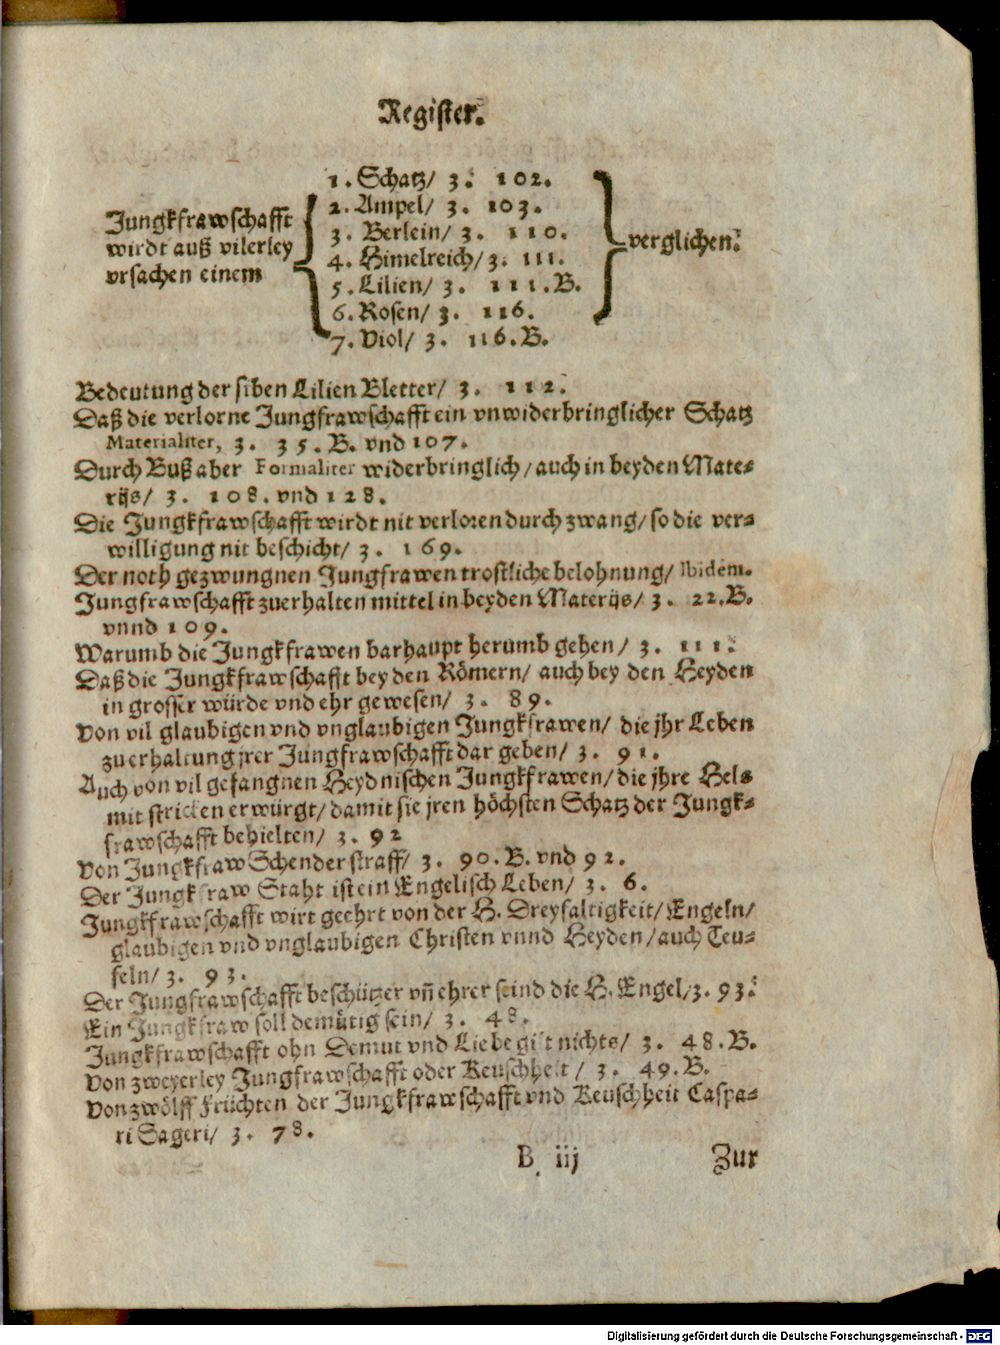 Register.
1. Schatz/ 3. 102.
2. Ampel/ 3. 103.
Jungkfrawschafft
wirdt auß vilerley
vrsachen einem
3. Berlein/ 3. 110.
4. Himelreich/ 3. 111.
5. Lilien/ 3. 111. B.
6. Rosen/ 3. 116.
7. Viol/ 3. 116. B.
verglichen.
Bedeutung der siben Lilien Bletter/ 3. 112.
Daß die verlorne Jungfrawschafft ein vnwiderbringlicher Schatz
Materialiter, 3. 35. B. vnd 107.
Durch Buß aber Formaliter widerbringlich/ auch in beyden Mate-
rijs/ 3. 108. vnd 128.
Die Jungkfrawschafft wirdt nit verloren durch zwang/ so die ver-
willigung nit beschicht/ 3. 169.
Der noth gezwungnen Jungfrawen trostliche belohnung/ Ibidem.
Jungfrawschafft zuerhalten mittel in beyden Materijs/ 3. 22. B.
vnnd 109.
Warumb die Jungkfrawen barhaupt herumb gehen/ 3. 111.
Daß die Jungkfrawschafft bey den Römern/ auch bey den Heyden
in grosser würde vnd ehr gewesen/ 3. 89.
Von vil glaubigen vnd vnglaubigen Jungkfrawen/ die jhr Leben
zuerhaltung jrer Jungfrawschafft dar geben/ 3. 91.
Auch von vil gefangnen Heydnischen Jungkfrawen/ die jhre Hels
mit stricken erwürgt/ damit sie jren höchsten Schatz der Jungk-
frawschafft behielten/ 3. 92
Von Jungkfraw Schender straff/ 3. 90. B. vnd 92.
Der Jungkfraw Staht ist ein Engelisch Leben/ 3. 6.
Jungkfrawschafft wirt geehrt von der H. Dreyfaltigkeit/ Engeln/
glaubigen vnd vnglaubigen Christen vnnd Heyden/ auch Teu-
feln/ 3. 93.
Der Jungfrawschafft beschützer vñ ehrer seind die H. Engel/ 3. 93.
Ein Jungkfraw soll demütig sein/ 3. 48.
Jungkfrawschafft ohn Demut vnd Liebe gilt nichts/ 3. 48. B.
Von zweyerley Jungfrawschafft oder Keuschheit/ 3. 49. B.
Von zwölff Früchten der Jungkfrawschafft vnd Keuschheit Caspa-
ri Sageri/ 3. 78.
B iij Zur
Digitalisierung gefördert durch die Deutsche Forschungsgemeinschaft - DFG